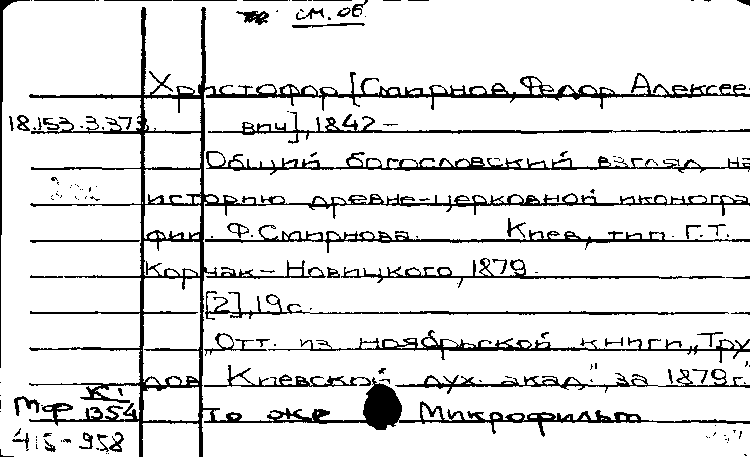 см. об.
Христофор [Смирнов, Федор Алексее-
18.153.3.373.
вич], 1842-
Общий богословский взгляд на
историю древне-церковной иконогра
фии. Ф. Смирнова. Киев, тип. Г.Т.
Корчак-Новицкого, 1879.
[2], 19 с.
"Отт. из ноябрьской книги "Тру
дов Киевской дух. акад.", за 1879 г."
Мф К1/1354 То же Микрофильм
415-958